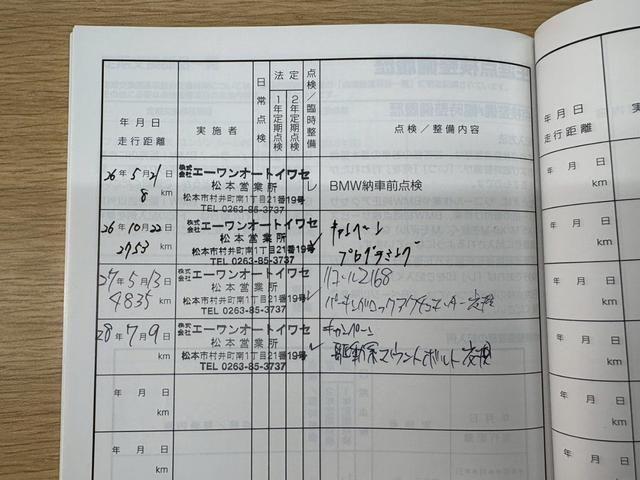 年月日
走行距離
実施者
日常点検
法定
1年定期点検
2年定期点検
点検／臨時整備
点検／整備内容
26年5月21日
8 km
株式会社 エーワンオートイワセ
松本営業所
松本市村井町南1丁目21番19号
TEL 0263-85-3737
BMW納車前点検
26年10月22日
2753 km
株式会社 エーワンオートイワセ
松本営業所
松本市村井町南1丁目21番19号
TEL 0263-85-3737
キャンペーン
プログラミング
27年5月13日
4835 km
株式会社 エーワンオートイワセ
松本営業所
松本市村井町南1丁目21番19号
TEL 0263-85-3737
リコール2168
パーキングロックアクチュエーター交換
28年7月9日
km
株式会社 エーワンオートイワセ
松本営業所
松本市村井町南1丁目21番19号
TEL 0263-85-3737
キャンペーン
マウントボルト交換
年 月 日
km
年 月 日
km
年月日
走行距離
実施
年 月 日
km
年 月 日
km
年 月 日
km
年 月 日
km
年 月 日
km
年 月 日